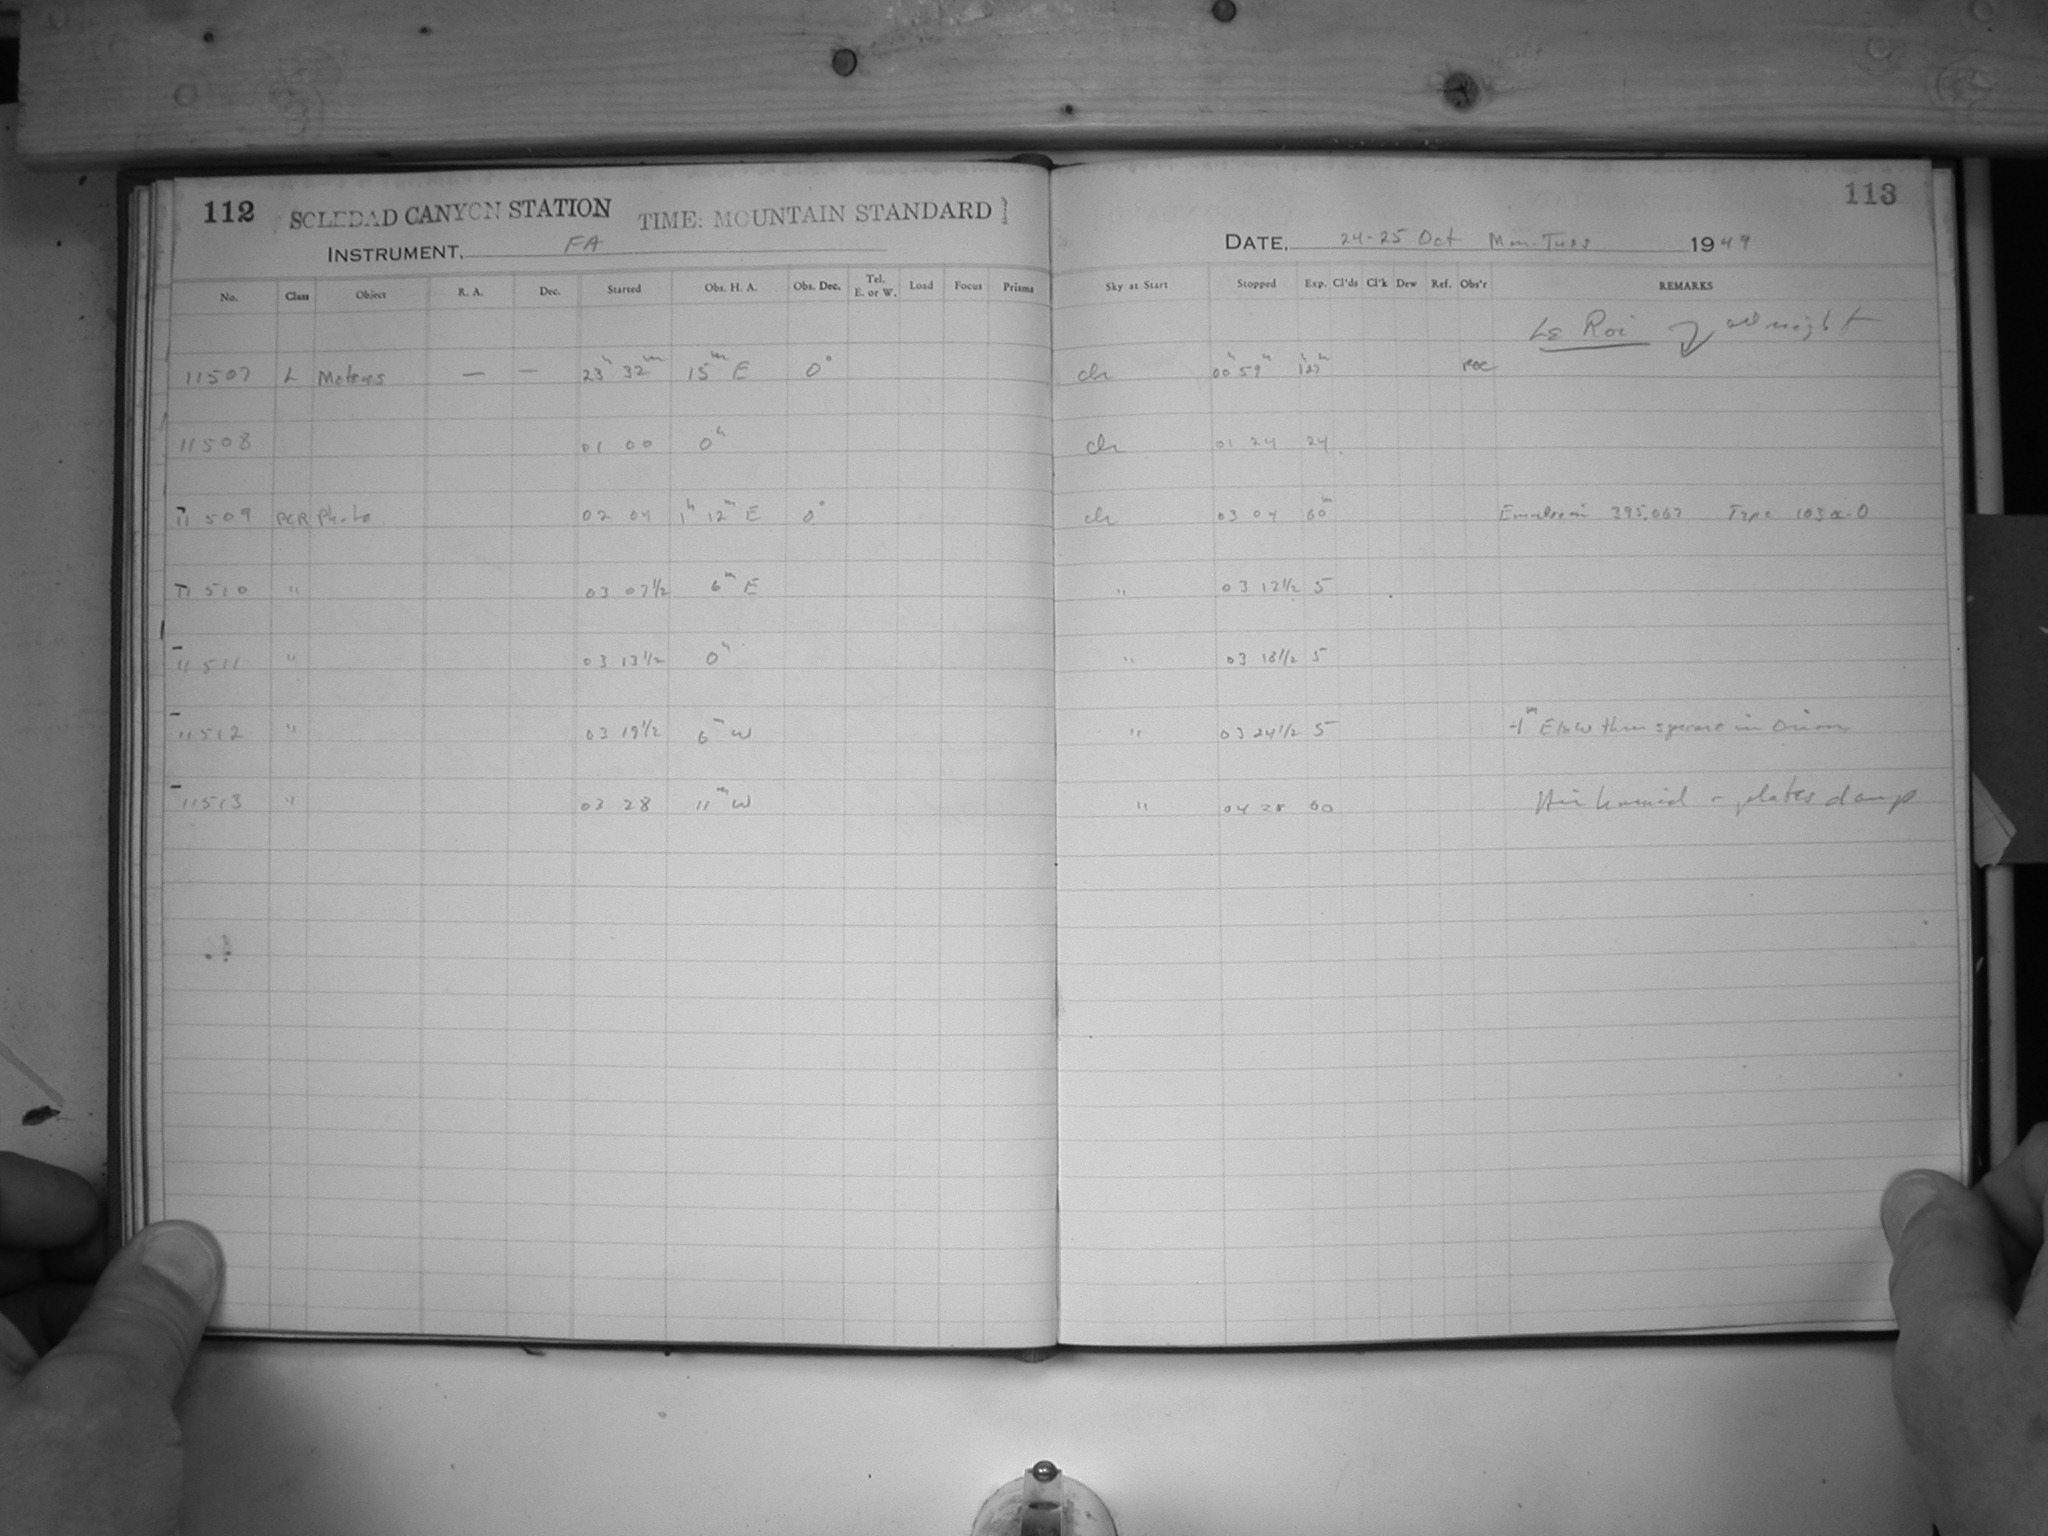 112 SOLEDAD CANYON STATION TIME: MOUNTAIN STANDARD
INSTRUMENT, FA
No. Class Object R. A. Dec. Started Obs. H. A. Obs. Dec. Tel. E. or W. Load Focus Prisms
11507 L Meteors — — 23h 32m 15m E 0°
11508 01 00 0h
11509 PCR Photo 02 04 1h 12m E 0°
11510 " 03 07½ 6m E
11511 " 03 13½ 0h
11512 " 03 19½ 6m W
11513 " 03 28 11m W
113
DATE, 24-25 Oct Mon-Tues 1949
Sky at Start Stopped Exp. Cl'ds Cl'k Dew Ref. Obs'r REMARKS
Le Roi all night
clr 00 59 127
clr 01 24 24
clr 03 04 60m Emulsion 395,067 Type 103a-O
" 03 12½ 5
" 03 18½ 5
" 03 24½ 5 in Orion
" 04 28 60 Air humid - plates damp